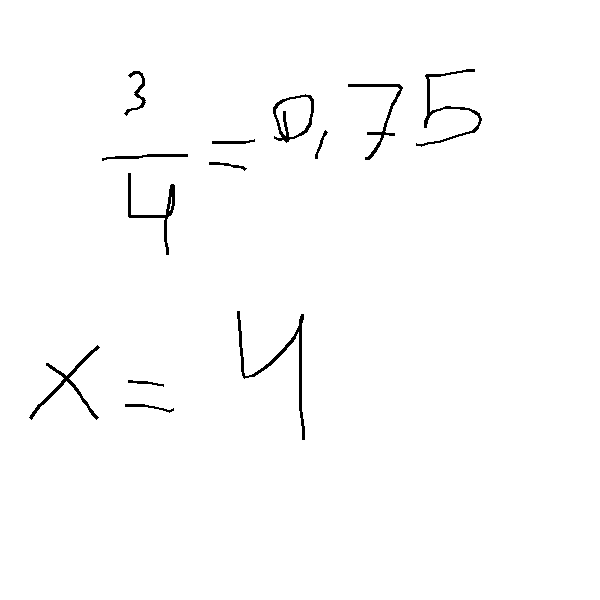 3/4 = 0,75
x = 4